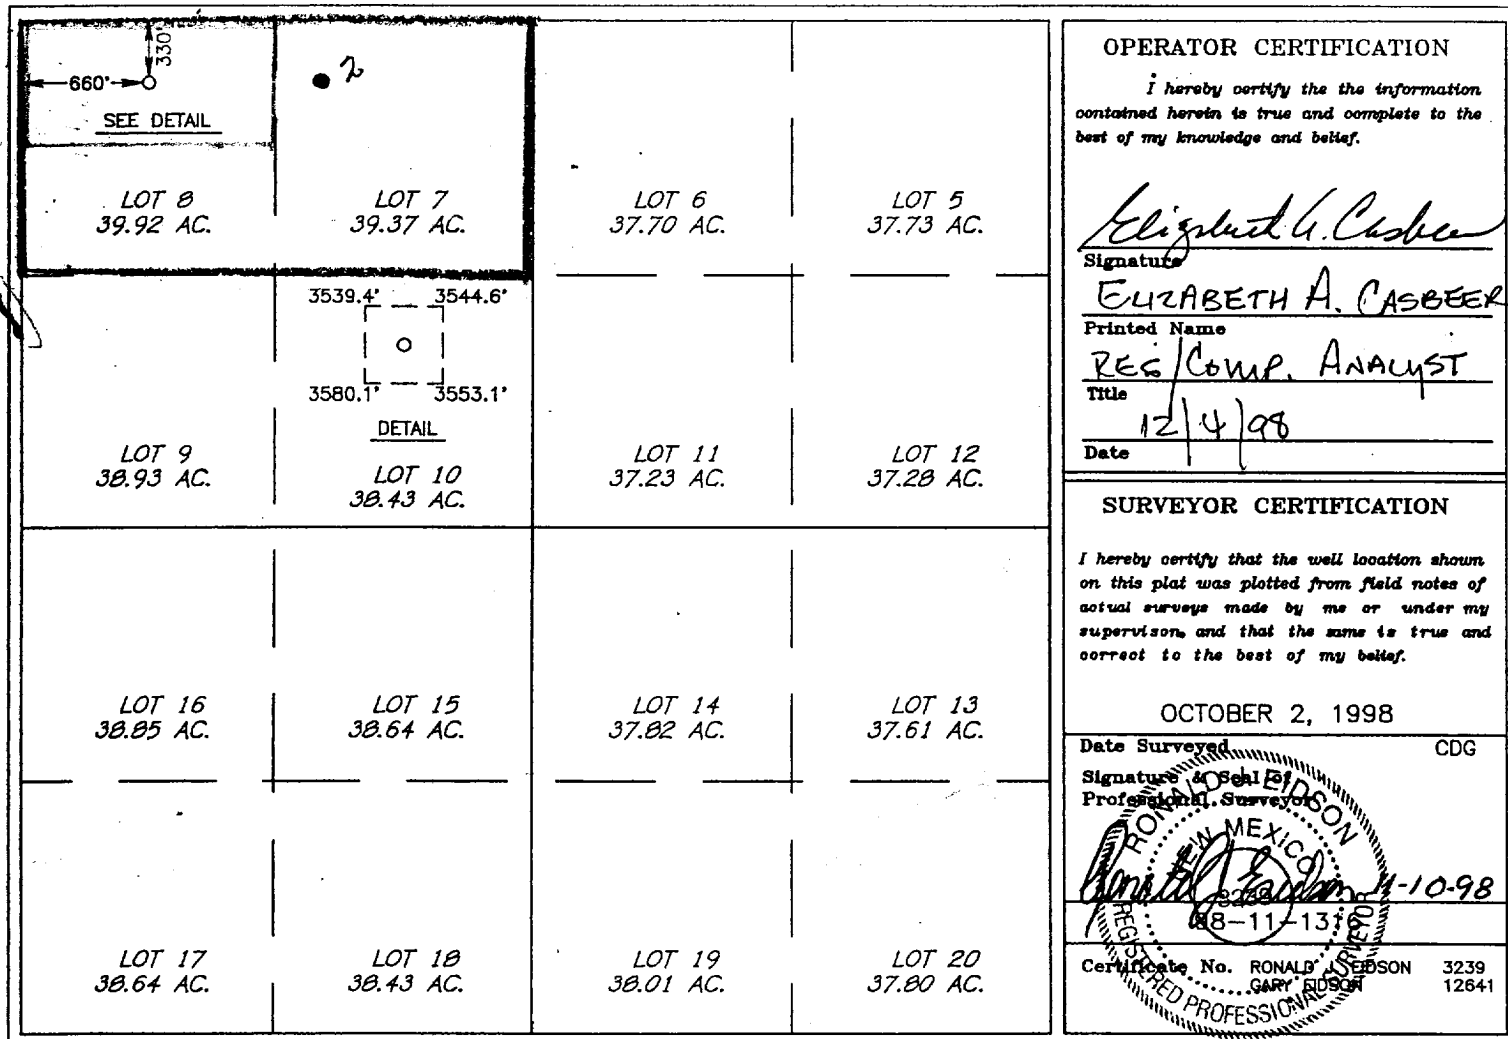 330'
660'
2
SEE DETAIL
LOT 8
39.92 AC.
LOT 7
39.37 AC.
LOT 6
37.70 AC.
LOT 5
37.73 AC.
3539.4' 3544.6'
3580.1' 3553.1'
DETAIL
LOT 9
38.93 AC.
LOT 10
38.43 AC.
LOT 11
37.23 AC.
LOT 12
37.28 AC.
LOT 16
38.85 AC.
LOT 15
38.64 AC.
LOT 14
37.82 AC.
LOT 13
37.61 AC.
LOT 17
38.64 AC.
LOT 18
38.43 AC.
LOT 19
38.01 AC.
LOT 20
37.80 AC.
OPERATOR CERTIFICATION
I hereby certify the the information
contained herein is true and complete to the
best of my knowledge and belief.
Elizabeth A. Casbeer
Signature
ELIZABETH A. CASBEER
Printed Name
REG/COMP. ANALYST
Title
12/4/98
Date
SURVEYOR CERTIFICATION
I hereby certify that the well location shown
on this plat was plotted from field notes of
actual surveys made by me or under my
supervison, and that the same is true and
correct to the best of my belief.
OCTOBER 2, 1998
Date Surveyed CDG
Signature & Seal of
Professional Surveyor
RONALD J. EIDSON
NEW MEXICO
3239
REGISTERED PROFESSIONAL SURVEYOR
Ronald J. Eidson 11-10-98
98-11-1316
Certificate No. RONALD J. EIDSON 3239
GARY EIDSON 12641